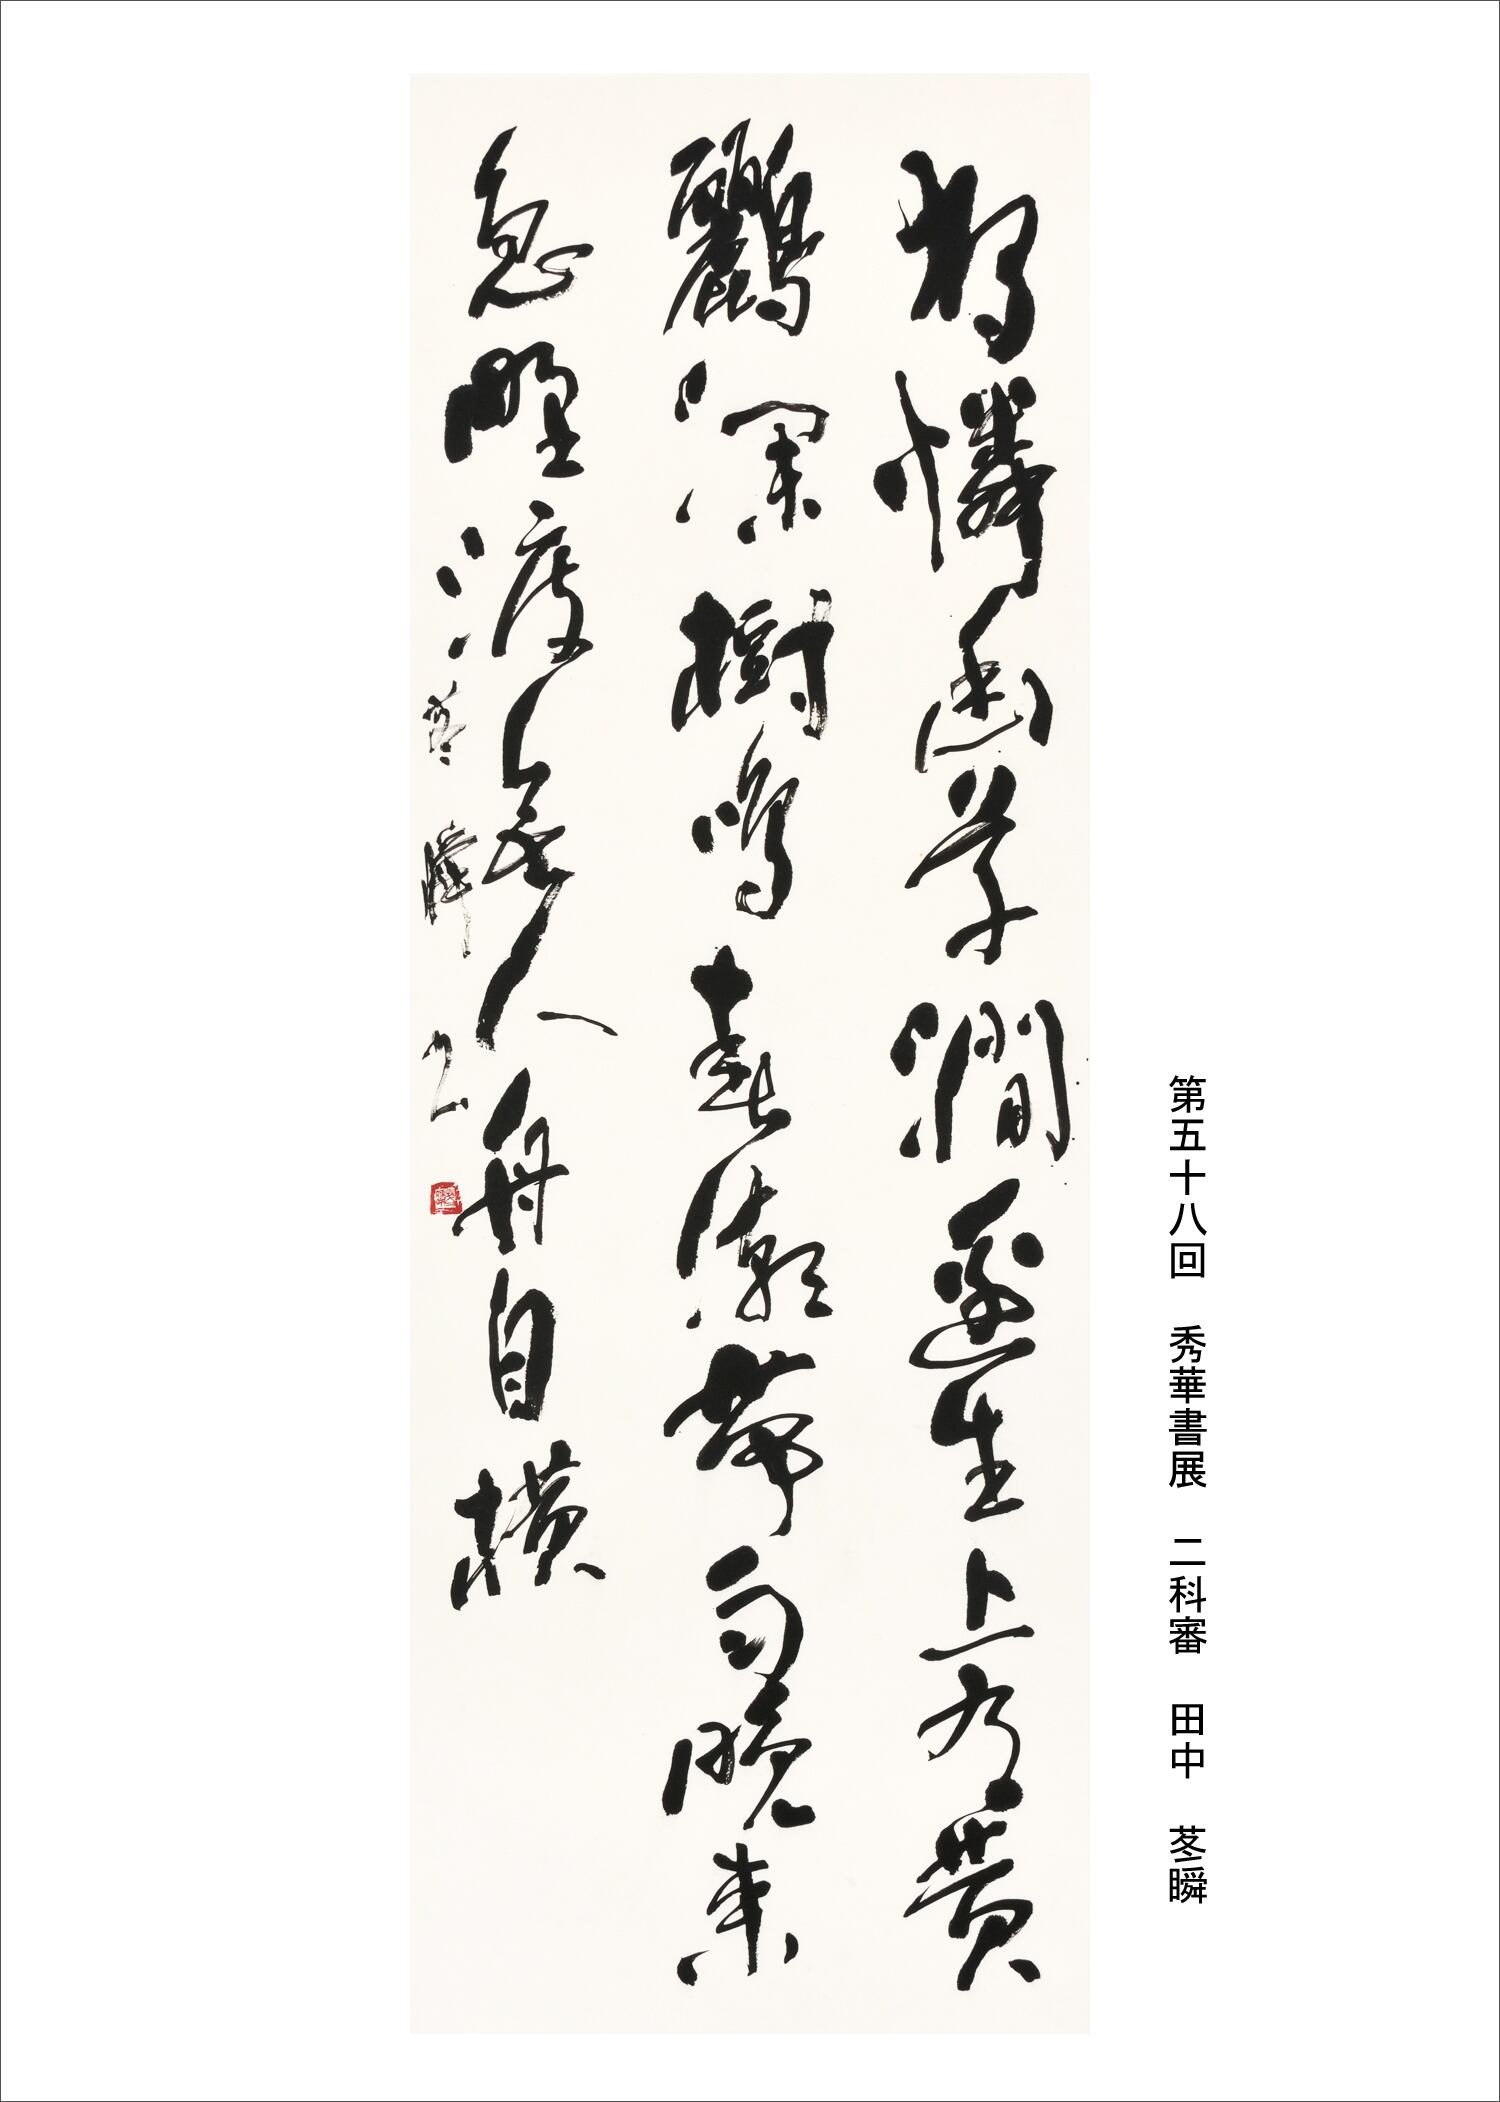 第五十八回　秀華書展　二科審　田中　苳瞬
独憐幽草澗邊生上有黄
鸝深樹鳴春潮帶雨晚来
急野渡無人舟自横
苳瞬